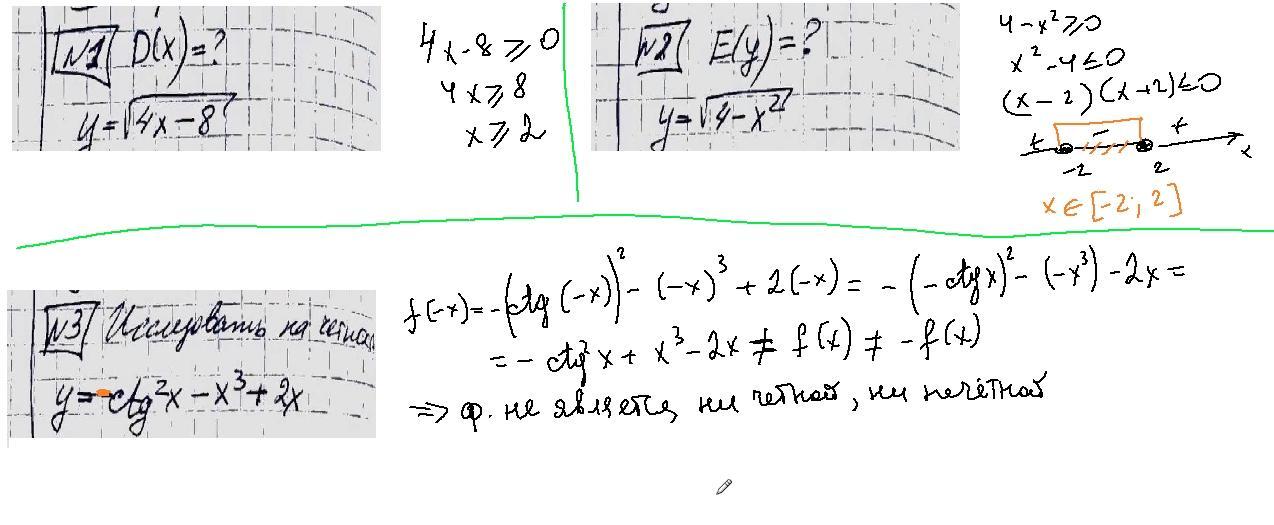 №1 D(x)=?
y=√(4x-8)
4x-8⩾0
4x⩾8
x⩾2
№2 E(y)=?
y=√(4-x²)
4-x²⩾0
x²-4≤0
(x-2)(x+2)≤0
+ - +
-2 2 x
x∈[-2; 2]
№3 Исследовать на четнос
y=-ctg²x-x³+2x
f(-x)=-(ctg(-x))²-(-x)³+2(-x)=-(-ctgx)²-(-x³)-2x=
=-ctg²x+x³-2x≠f(x)≠-f(x)
=> ф. не является ни четной, ни нечётной